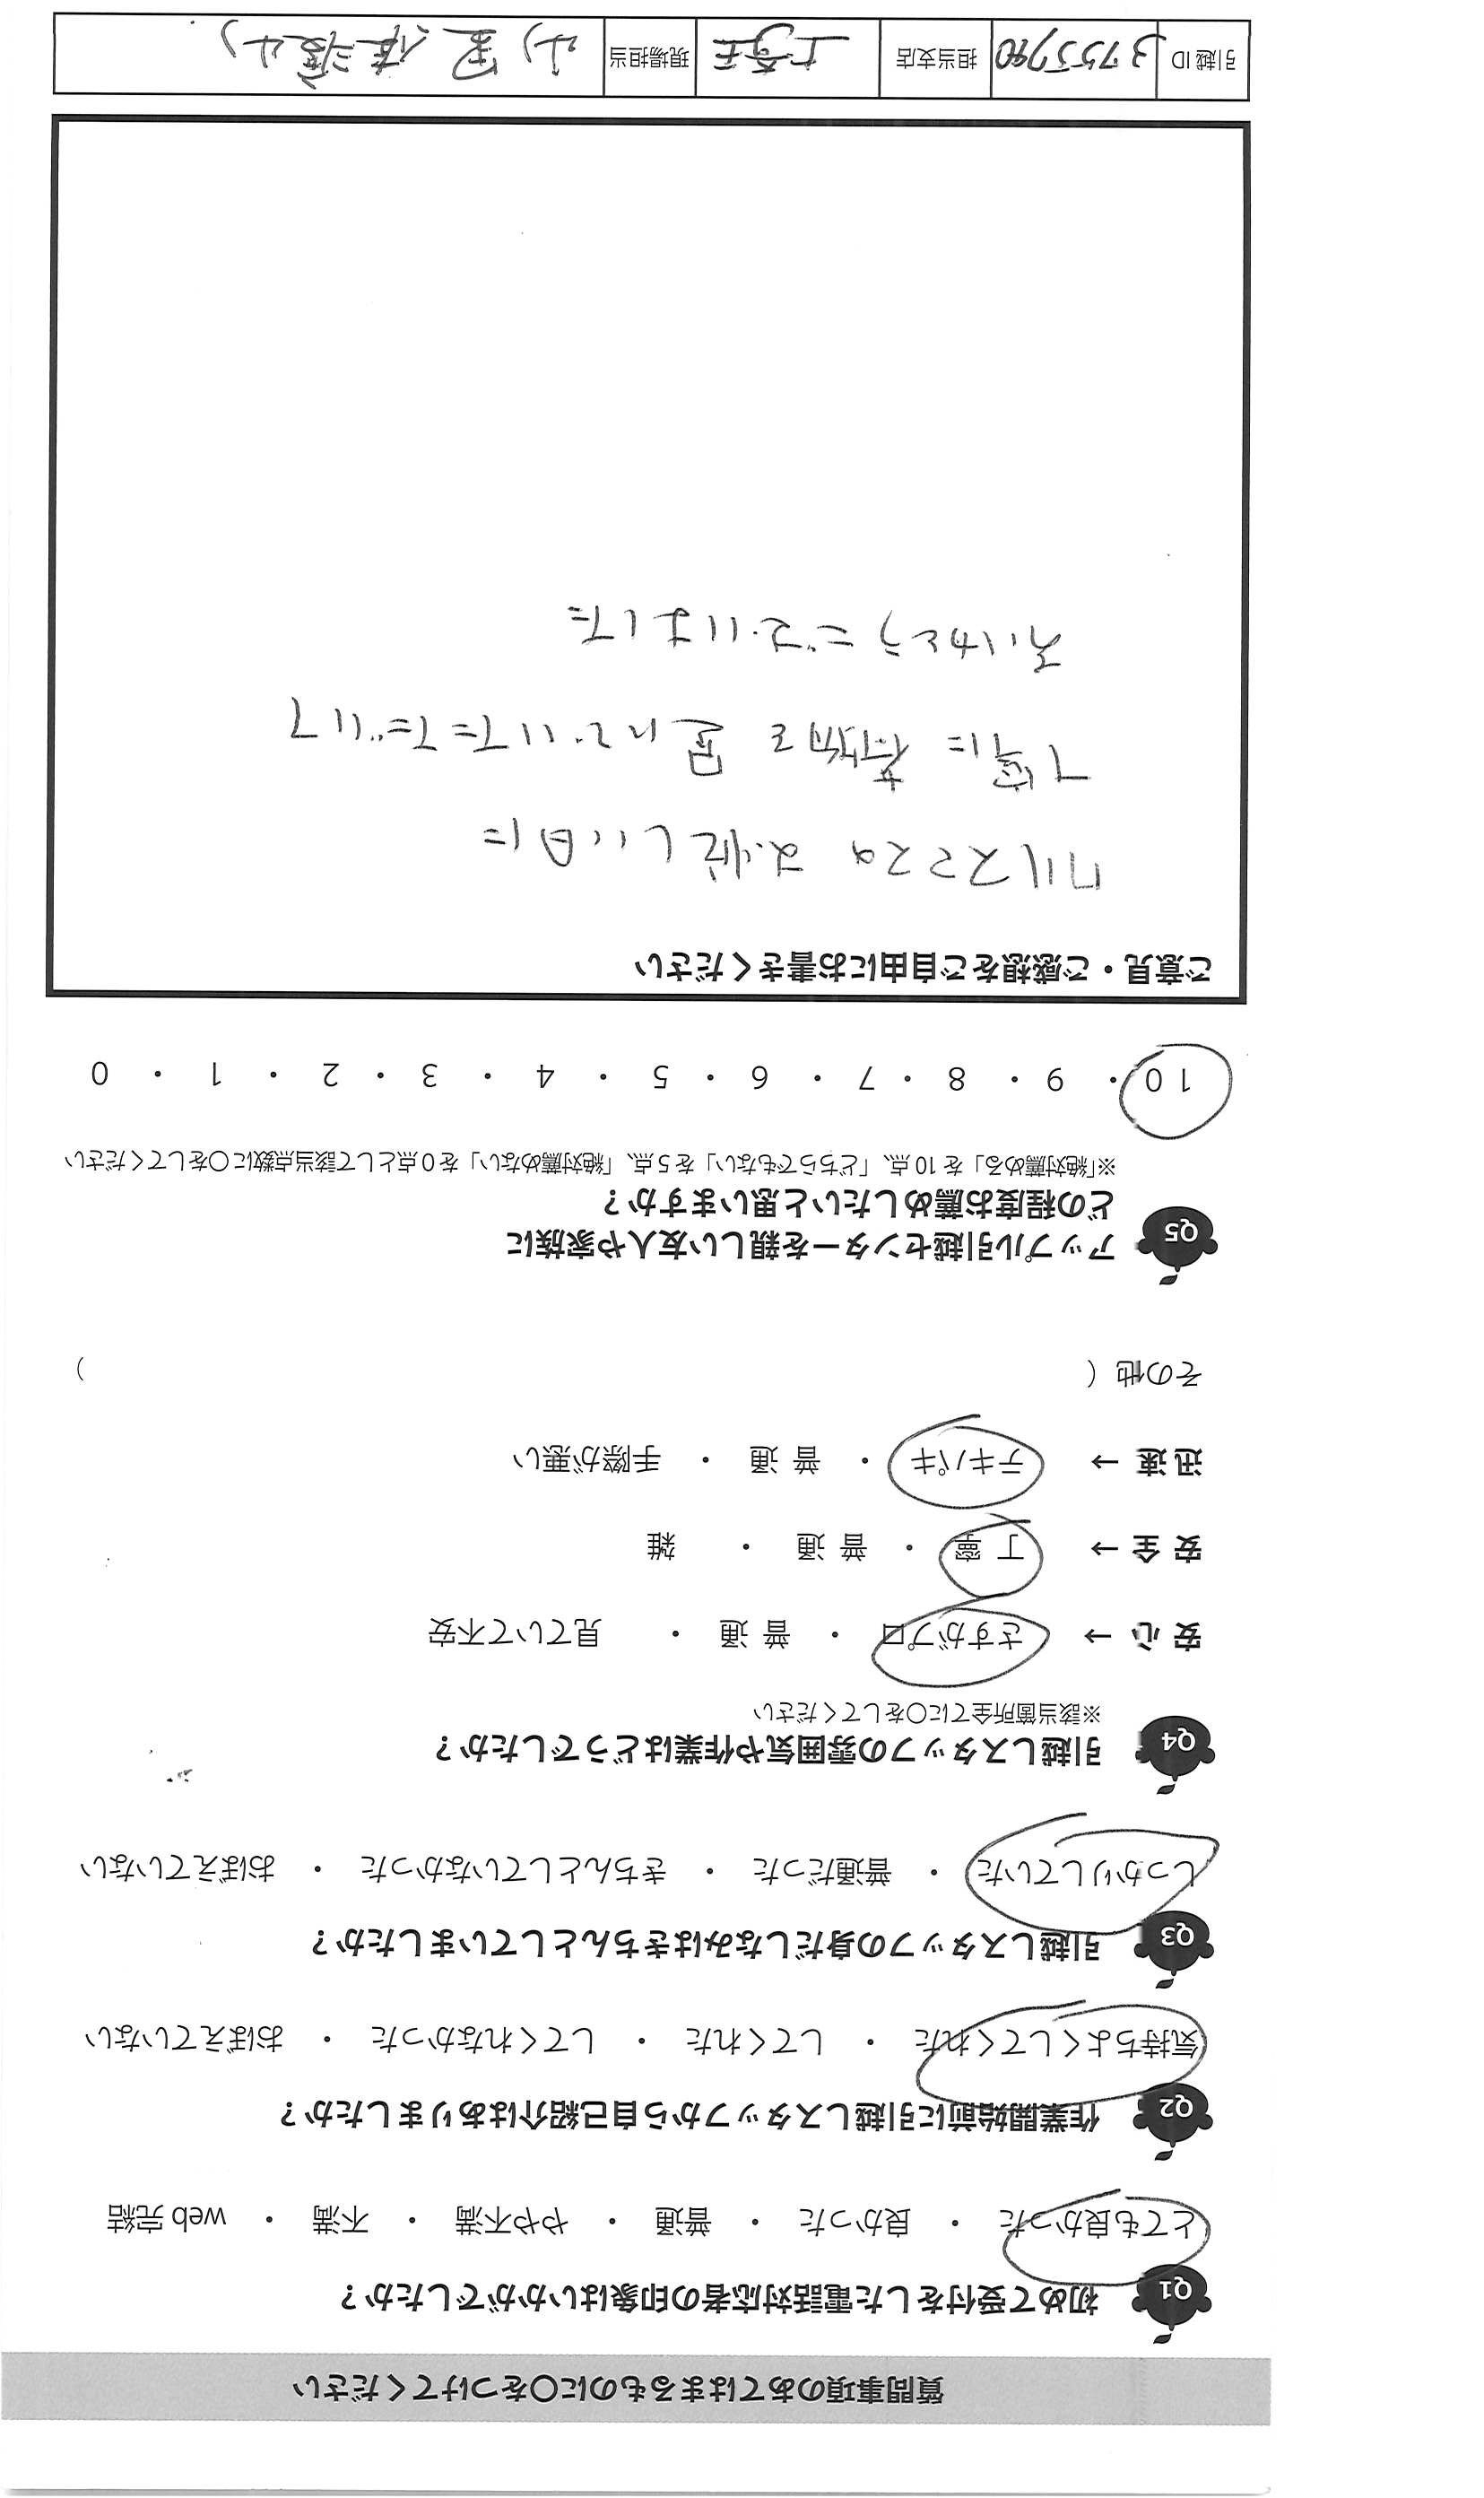 質問事項のあてはまるものに○をつけてください
Q1 初めて受付をした電話対応者の印象はいかがでしたか？
とても良かった ・ 良かった ・ 普通 ・ やや不満 ・ 不満 ・ web 完結
Q2 作業開始前に引越しスタッフから自己紹介はありましたか？
気持ちよくしてくれた ・ してくれた ・ してくれなかった ・ おぼえていない
Q3 引越しスタッフの身だしなみはきちんとしていましたか？
しっかりしていた ・ 普通だった ・ きちんとしていなかった ・ おぼえていない
Q4 引越しスタッフの雰囲気や作業はどうでしたか？
※該当箇所全てに○をしてください
安 心 → さすがプロ ・ 普 通 ・ 見ていて不安
安 全 → 丁 寧 ・ 普 通 ・ 雑
迅 速 → テキパキ ・ 普 通 ・ 手際が悪い
その他 ( )
Q5 アップル引越センターを親しい友人や家族に
どの程度お薦めしたいと思いますか？
※「絶対薦める」を 10 点、「どちらでもない」を 5 点、「絶対薦めない」を 0 点として該当点数に○をしてください
10 ・ 9 ・ 8 ・ 7 ・ 6 ・ 5 ・ 4 ・ 3 ・ 2 ・ 1 ・ 0
ご意見・ご感想をご自由にお書きください
クリスマスの お忙しい日に
丁寧に 荷物を 運んでいただいて
ありがとうございました
引越 ID 3755790 担当支店 埼玉 現場担当